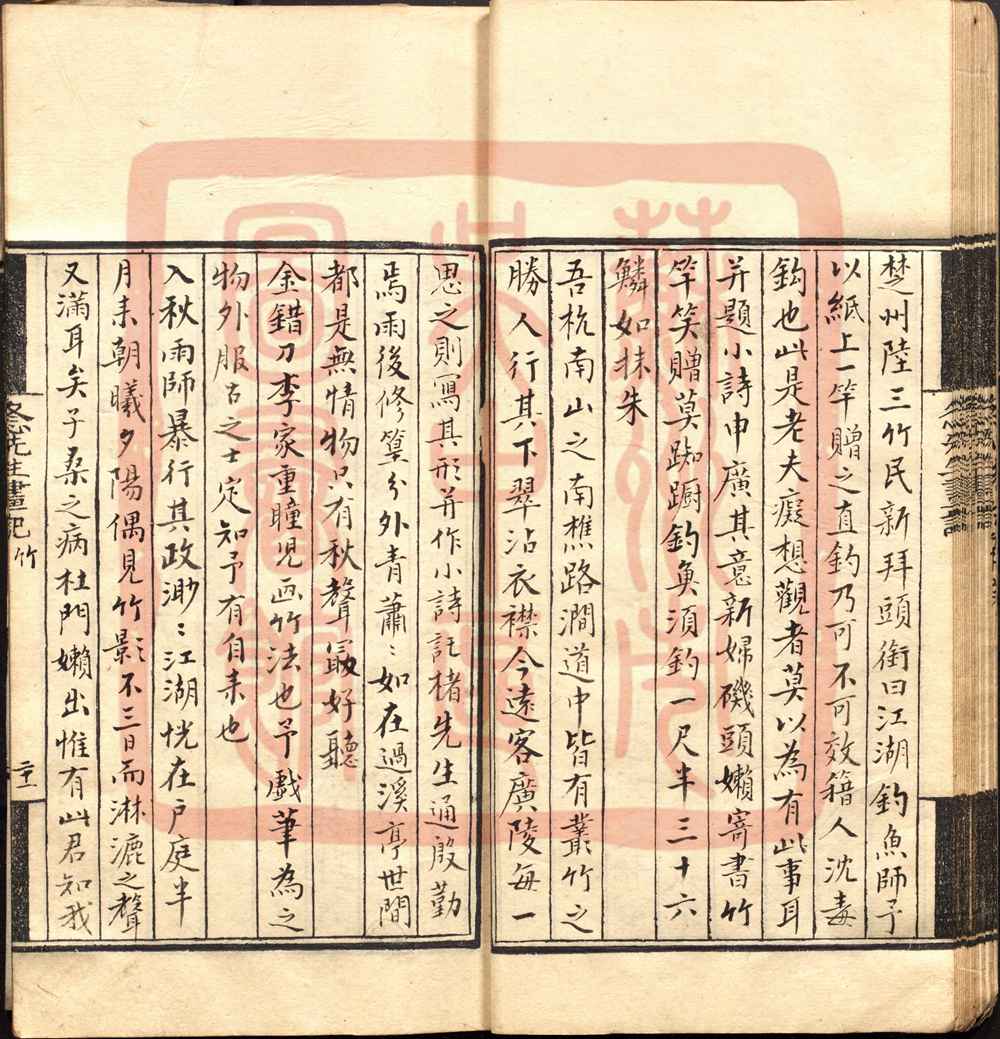 楚州陸三竹民新拜頭銜曰江湖釣魚師予
以紙上一竿贈之直釣乃可不可效籍人沈毒
鈎也此是老夫癡想觀者莫以為有此事耳
并題小詩申廣其意新婦磯頭嬾寄書竹
竿笑贈莫踟蹰釣魚須釣一尺半三十六
鱗如抹朱
吾杭南山之南樵路澗道中皆有叢竹之
勝人行其下翠沾衣襟今遠客廣陵每一
思之則寫其形并作小詩託楮先生通殷勤
焉雨後修篁分外青蕭〻如在過溪亭世間
都是無情物只有秋聲最好聽
金錯刀李家重瞳兒画竹法也予戲筆為之
物外服古之士定知予有自来也
入秋雨師暴行其政渺〻江湖恍在戸庭半
月来朝曦夕陽偶見竹影不三日而淋漉之聲
又滿耳矣子桑之病杜門嬾出惟有此君知我
冬心先生畫記 竹
二十一